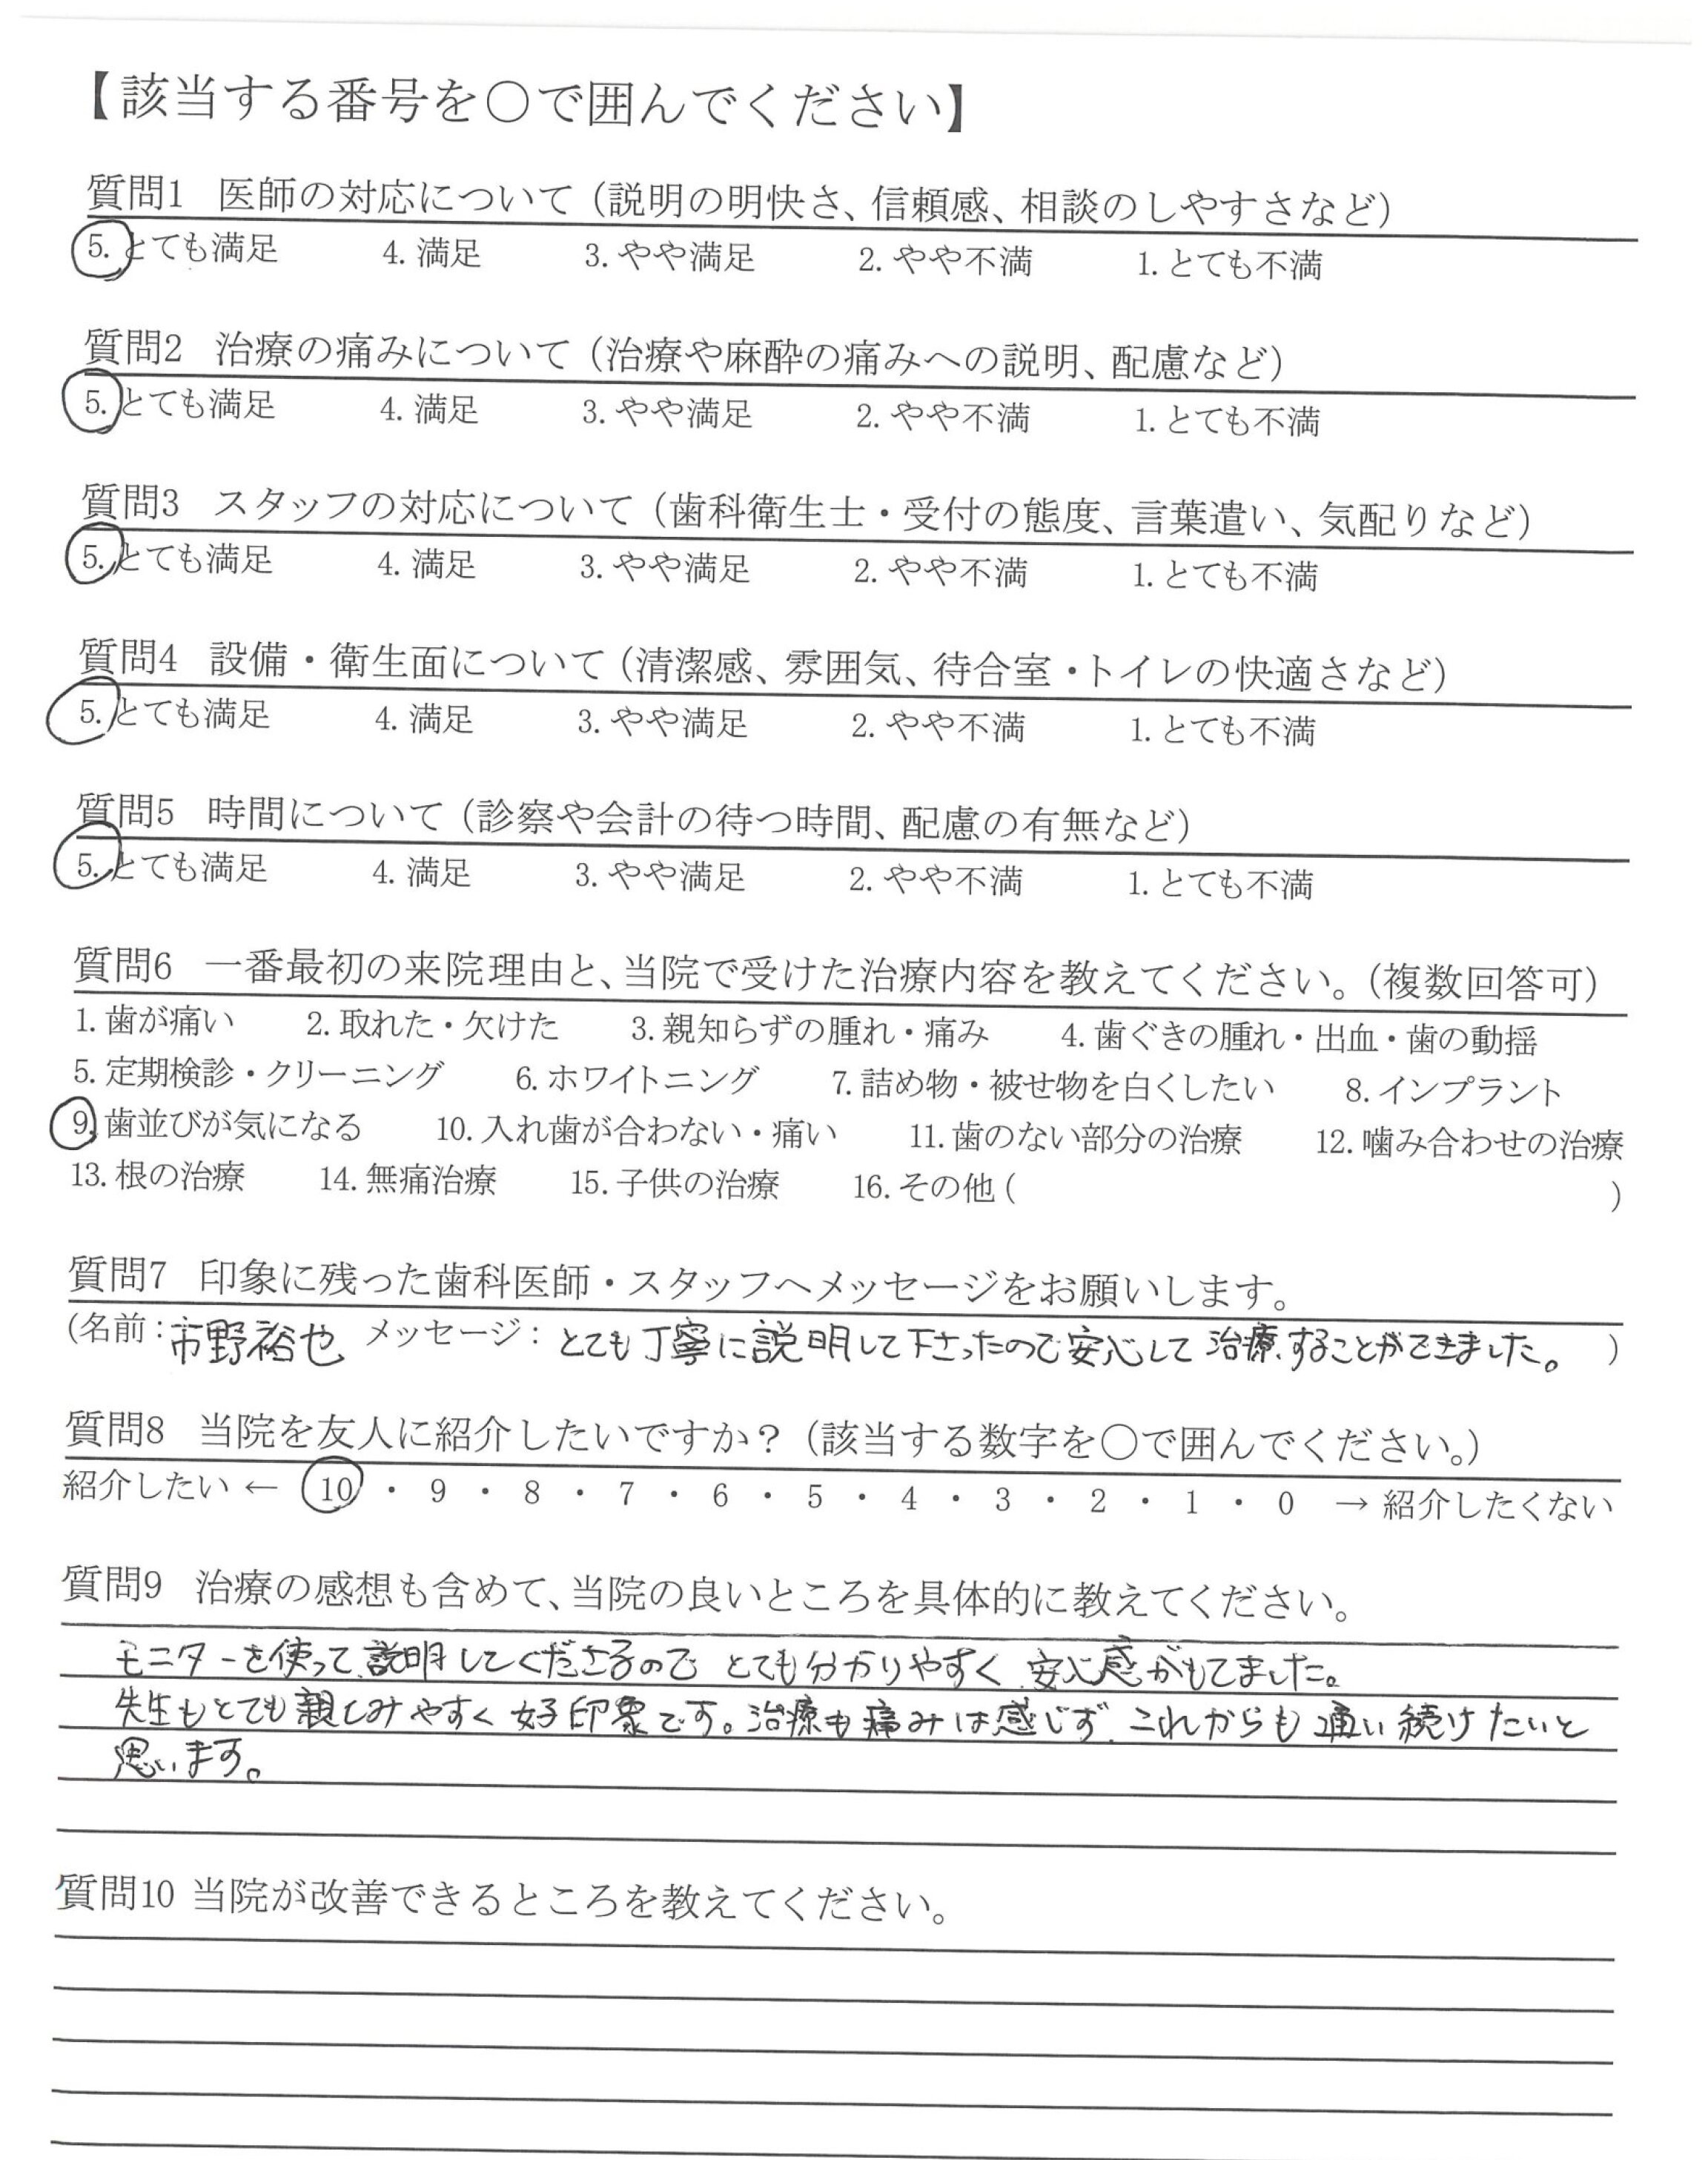 【該当する番号を〇で囲んでください】
質問1 医師の対応について（説明の明快さ、信頼感、相談のしやすさなど）
5. とても満足 4. 満足 3. やや満足 2. やや不満 1. とても不満
質問2 治療の痛みについて（治療や麻酔の痛みへの説明、配慮など）
5. とても満足 4. 満足 3. やや満足 2. やや不満 1. とても不満
質問3 スタッフの対応について（歯科衛生士・受付の態度、言葉遣い、気配りなど）
5. とても満足 4. 満足 3. やや満足 2. やや不満 1. とても不満
質問4 設備・衛生面について（清潔感、雰囲気、待合室・トイレの快適さなど）
5. とても満足 4. 満足 3. やや満足 2. やや不満 1. とても不満
質問5 時間について（診察や会計の待つ時間、配慮の有無など）
5. とても満足 4. 満足 3. やや満足 2. やや不満 1. とても不満
質問6 一番最初の来院理由と、当院で受けた治療内容を教えてください。（複数回答可）
1. 歯が痛い 2. 取れた・欠けた 3. 親知らずの腫れ・痛み 4. 歯ぐきの腫れ・出血・歯の動揺
5. 定期検診・クリーニング 6. ホワイトニング 7. 詰め物・被せ物を白くしたい 8. インプラント
9. 歯並びが気になる 10. 入れ歯が合わない・痛い 11. 歯のない部分の治療 12. 噛み合わせの治療
13. 根の治療 14. 無痛治療 15. 子供の治療 16. その他（ ）
質問7 印象に残った歯科医師・スタッフへメッセージをお願いします。
（名前：市野裕也 メッセージ：とても丁寧に説明して下さったので安心して治療することができました。）
質問8 当院を友人に紹介したいですか？（該当する数字を〇で囲んでください。）
紹介したい ← 10 ・ 9 ・ 8 ・ 7 ・ 6 ・ 5 ・ 4 ・ 3 ・ 2 ・ 1 ・ 0 → 紹介したくない
質問9 治療の感想も含めて、当院の良いところを具体的に教えてください。
モニターを使って、説明してくださるので とても分かりやすく、安心感がもてました。
先生もとても親しみやすく 好印象です。治療も痛みは感じず、これからも通い続けたいと
思います。
質問10 当院が改善できるところを教えてください。